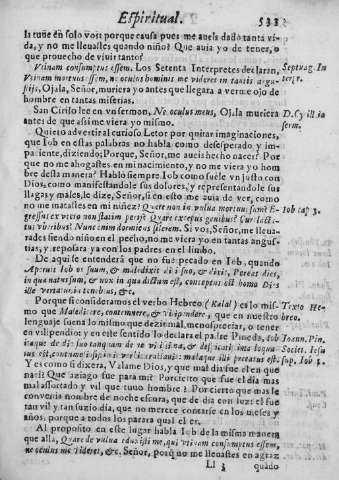 Espiritual. 533
la tuue en solo vos: porque causa pues me aueis dado tanta vi-
da, y no me lleuastes quando niño? Que auia yo de tener, o
que prouecho de viuir tanto?
Vtinam consumptus essem. Los Setenta Interpretes declaran,
Vtinam mortuus essem, ne oculus hominis me videret in tantis argu-
stijs, Ojala, Señor, muriera yo antes que llegara a verme ojo de
hombre en tantas miserias.
San Cirilo lee en vn sermon, Ne oculus meus, Ojala muriera
antes de que assi me viera yo mismo.
Quiero aduertir al curioso Letor por quitar imaginaciones,
que Iob en estas palabras no habla como desesperado, y im-
paciente, diziendo; Porque, Señor, me aueis hecho nacer? Por
que no me ahogastes en mi nacimiento, y no me viera yo hom
bre desta manera? Habló siempre Iob como suele vn justo con
Dios, como manifestandole sus dolores, y representandole sus
llagas y males, le dize, Señor, si en esto me auia de ver, como
no me matastes en mi niñez? Quare non in vulua mortuus sum? E
gressus ex vtero non statim perij? Quare exceptus genibus? Cur lacta-
tus vberibus? Nunc enim dormiens silerem. Si vos, Señor, me lleua-
rades siendo niño en el pecho, no me viera yo en tantas angus-
tias, y reposara ya con los padres en el limbo.
De aqui se entenderá que no fue pecado en Iob, quando
Aperuit Iob os suum, & maledixit diei suo, & dixit, Pereat dies,
in qua natus sum, & nox in qua dictum est, conceptus est homo. Dies
ille vertatur in tenebras, &c.
Porque si consideramos el verbo Hebreo (Kalal) es lo mis-
mo que Maledicere, contemnere, & vilipendere, que en nuestro
lenguaje suena lo mismo que dezir mal, menospreciar, o tener
en vilpendio: y en este sentido lo declara el padre Pineda, Iob
itaque de die suo tanquam de re vili,
Y es como si dixera, Valame Dios, y que mal dia fue el en que
naci! Que aziago fue para mi? Por cierto que fue el dia mas
malafortado y vil que tuuo hombre? Por cierto que mas le
conuenia nombre de noche escura, que de dia con luz: el fue
tan vil y tan suzio dia, que no merece contarse en los meses y
años, porque a todos los parara qual el er.
Al proposito en este lugar habla Iob de la misma manera
que alla, Quare de vulua eduxisti me, qui vtinam consumptus essem,
ne oculus me videret, &c. Señor, porque no me lleuastes en agraz
Ll 3 quādo
Septuag. In
D. Cyril. in
serm.
Iob cap 3.
Texto He-
breo.
Ioann. Pin.
Societ. Iesu
sup. Iob 3.